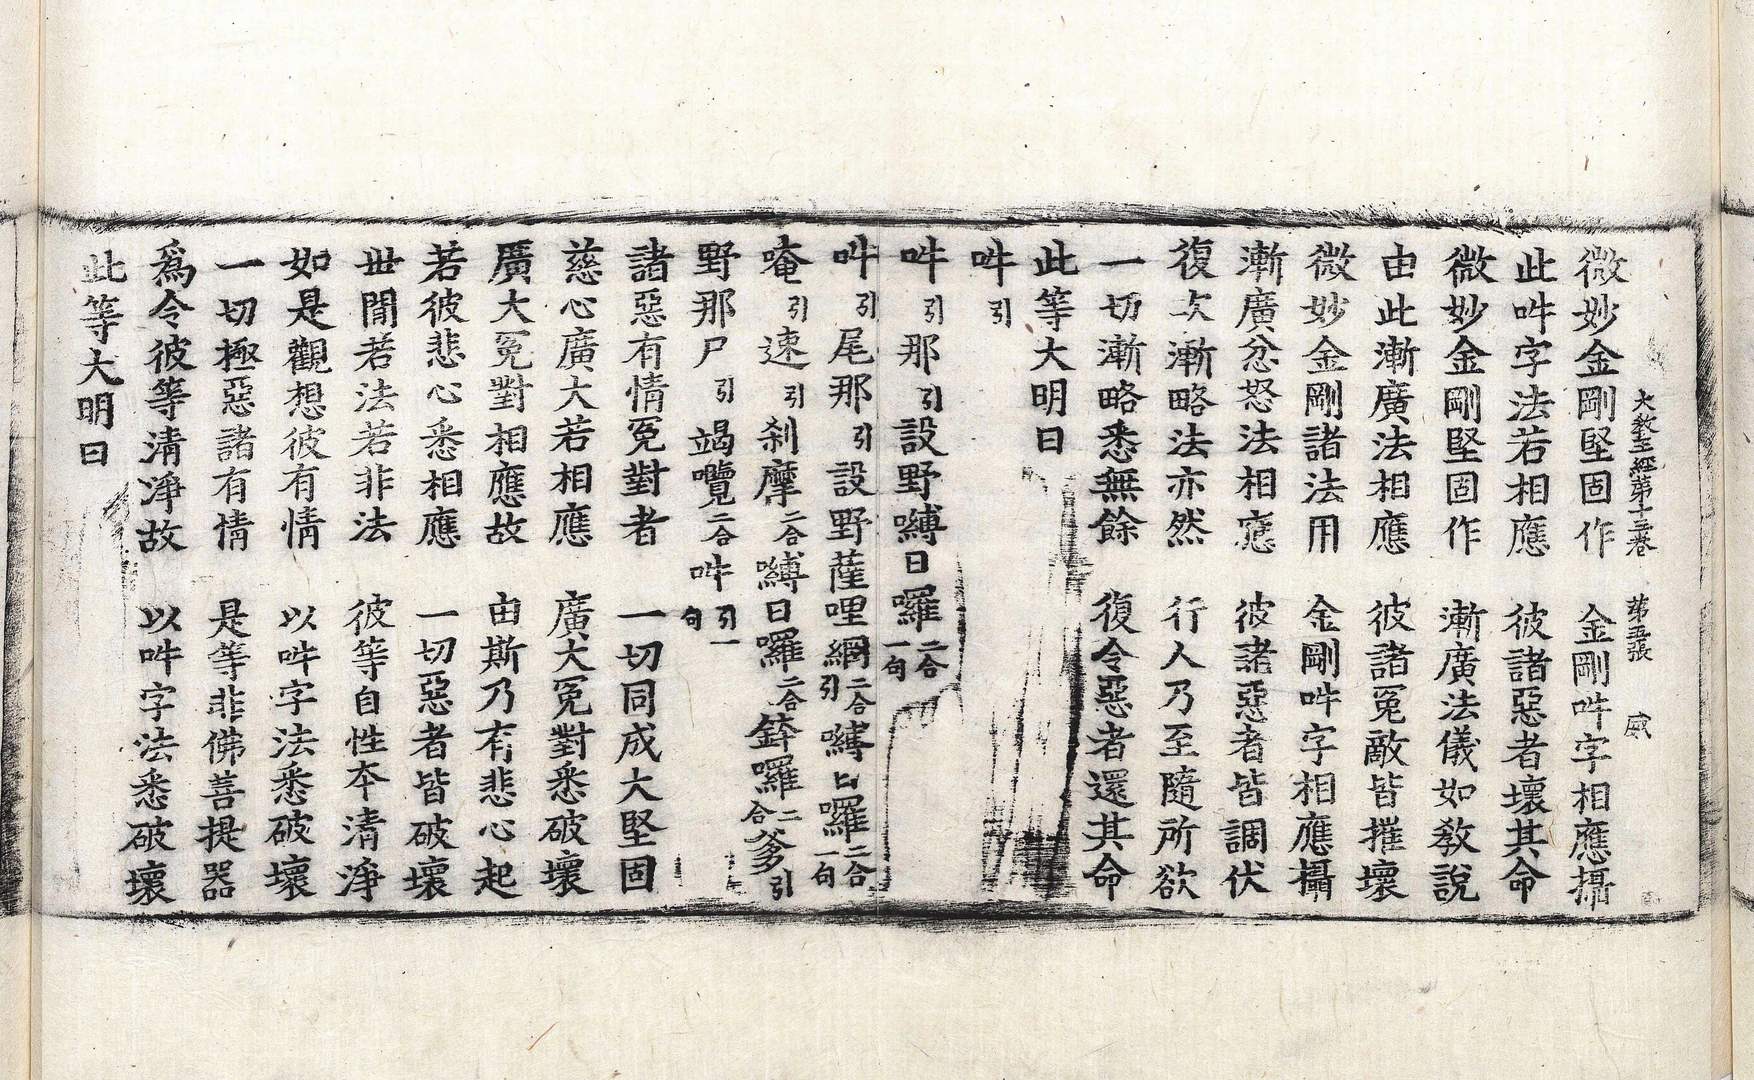 大教王經第十三卷 第五張 感
微妙金剛堅固作 金剛吽字相應攝
此吽字法若相應 彼諸惡者壞其命
微妙金剛堅固作 漸廣法儀如教說
由此漸廣法相應 彼諸冤敵皆摧壞
微妙金剛諸法用 金剛吽字相應攝
漸廣忿怒法相應 彼諸惡者皆調伏
復次漸略法亦然 行人乃至隨所欲
一切漸略悉無餘 復令惡者還其命
此等大明曰
吽引
吽引那引設野嚩日囉二合一句
吽引尾那引設野薩哩網二合引嚩日囉二合一句
唵引速引剎摩二合嚩日囉二合鉢囉二合爹引
野那尸引竭嚂二合吽引一句
諸惡有情冤對者 一切同成大堅固
慈心廣大若相應 廣大冤對悉破壞
廣大冤對相應故 由斯乃有悲心起
若彼悲心悉相應 一切惡者皆破壞
世間若法若非法 彼等自性本清淨
如是觀想彼有情 以吽字法悉破壞
一切極惡諸有情 是等非佛菩提器
爲令彼等清淨故 以吽字法悉破壞
此等大明曰